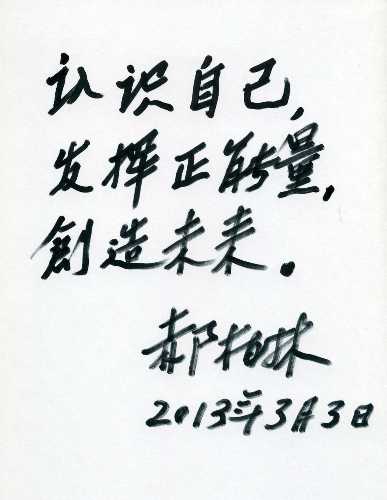 认识自己,
发挥正能量,
創造未来。
郝柏林
2013年3月3日